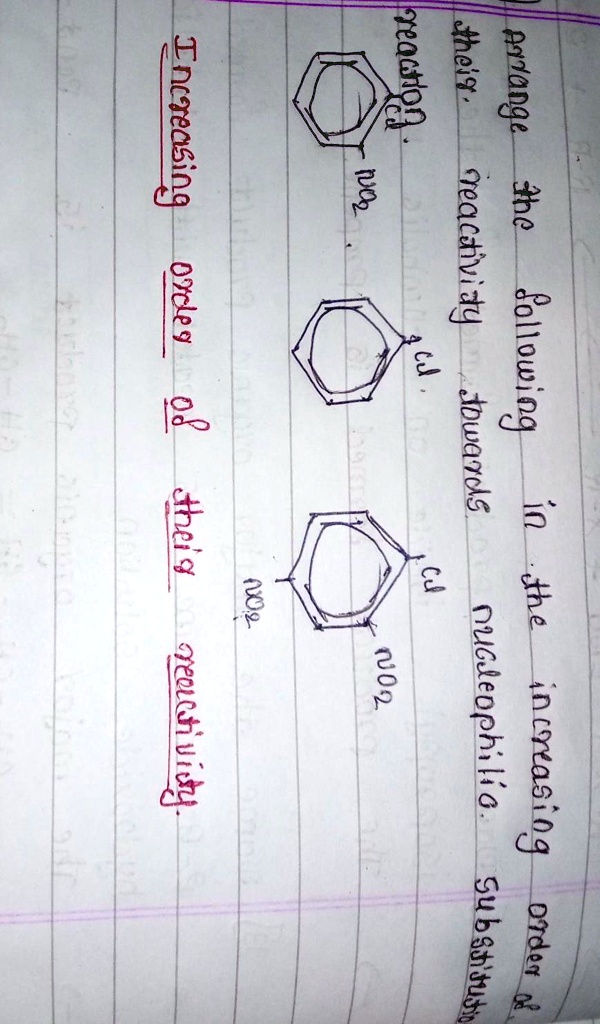 Arrange the following in the increasing order of
their reactivity towards nucleophilic substitutio
reaction.
Cl
NO2
Cl
Cl
NO2
NO2
Increasing order of their reactivity.